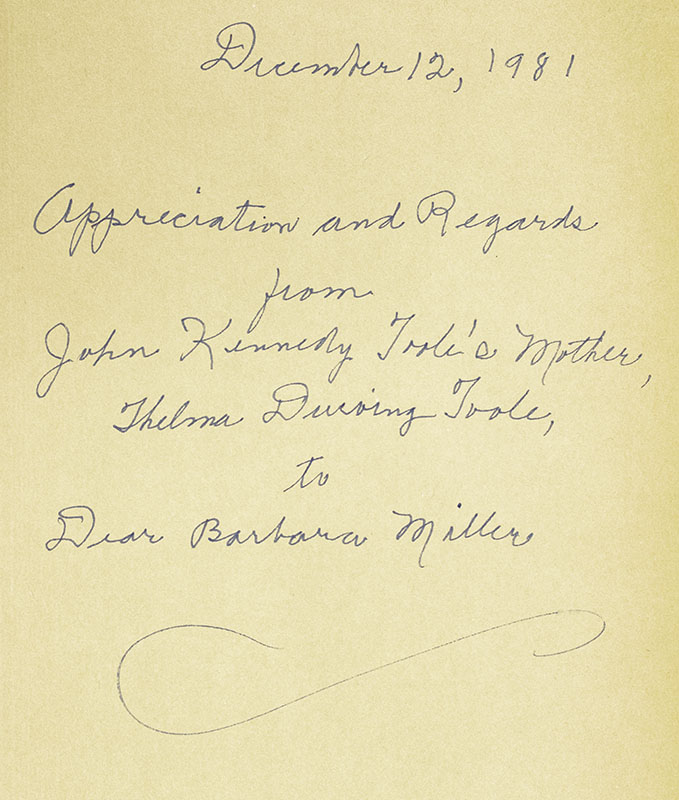 December 12, 1981
Appreciation and Regards
from
John Kennedy Toole's Mother,
Thelma Ducoing Toole,
to
Dear Barbara Miller